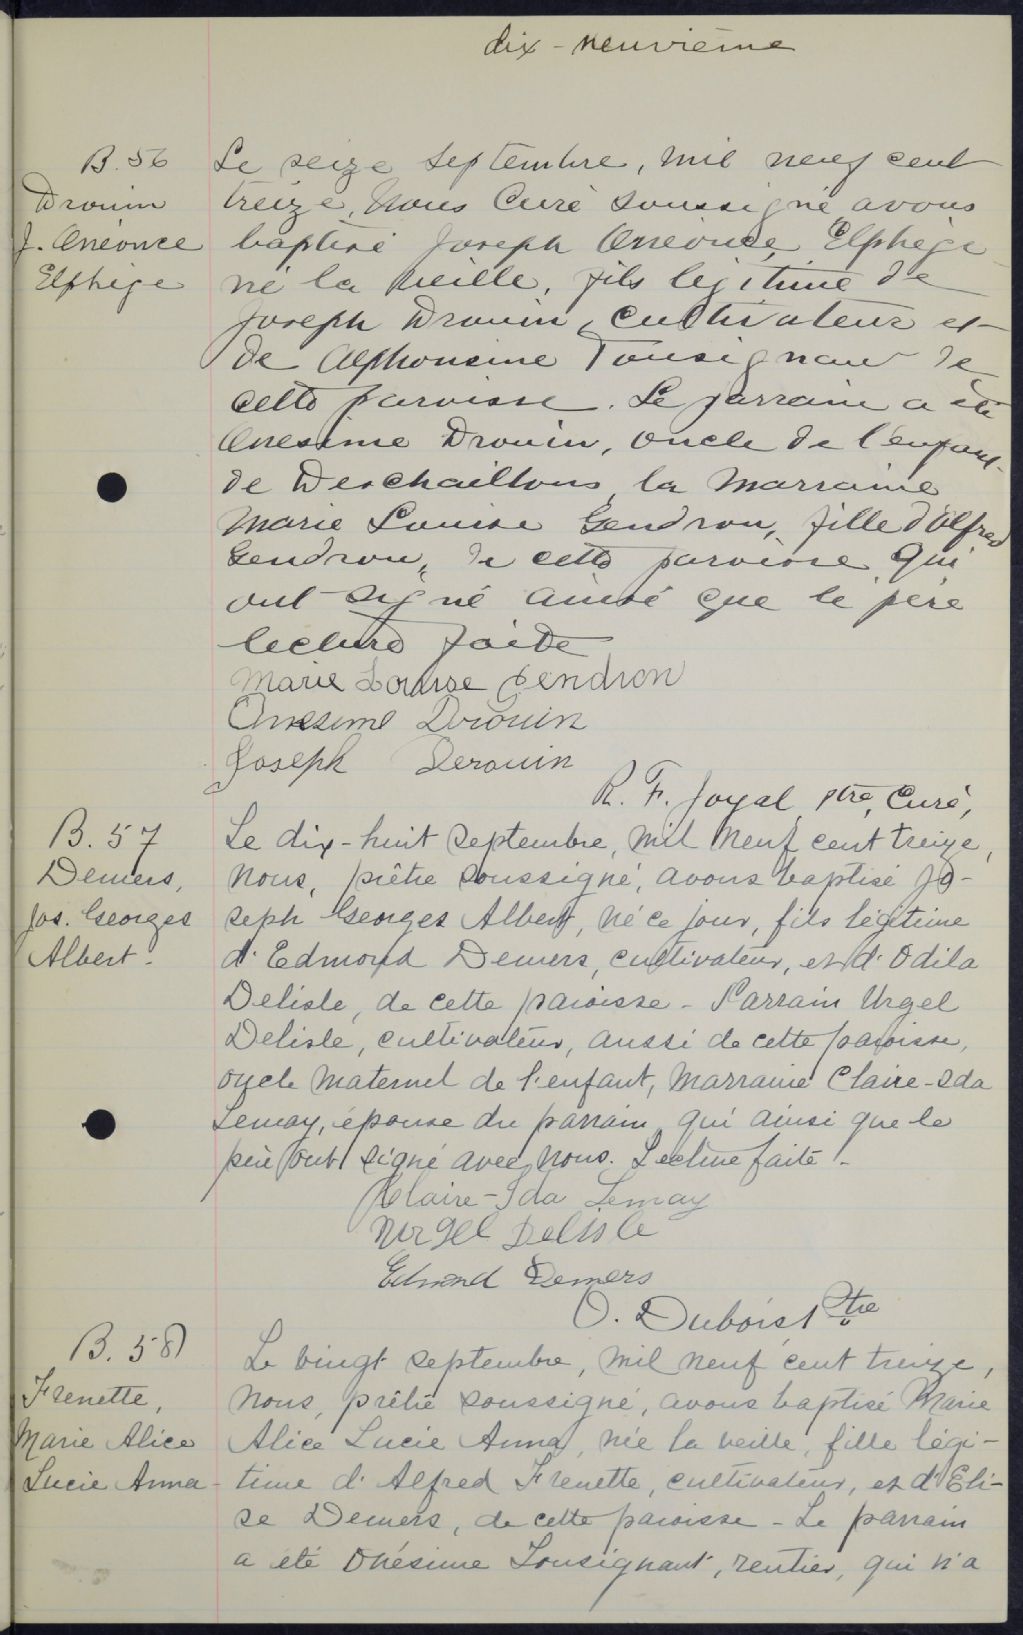 dix-neuvième
B. 56
Drouin
J. Onéonce
Elphège
Le seize Septembre, mil neuf cent
treize, Nous Curé soussigné avons
baptisé Joseph Onéonce Elphège
né la veille, fils légitime de
Joseph Drouin, Cultivateur et
de Alphonsine Tousignant de
cette paroisse. Le parrain a été
Onesime Drouin, oncle de l'enfant
de Deschaillons, la Marraine
Marie Louise Gendron, fille d'Alfred
Gendron, de cette paroisse qui
ont signé ainsi que le père
lecture faite
Marie Louise Gendron
Onesime Drouin
Joseph Derouin
R. F. Joyal, ptre, Curé,
B. 57
Demers,
Jos. Georges
Albert.
Le dix-huit septembre, mil neuf cent treize,
nous, prêtre soussigné, avons baptisé Jo-
seph Georges Albert, né ce jour, fils légitime
d'Edmond Demers, cultivateur, et d'Odila
Delisle, de cette paroisse - Parrain Urgel
Delisle, cultivateur, aussi de cette paroisse,
oncle maternel de l'enfant, marraine Claire-Ida
Lemay, épouse du parrain, qui ainsi que le
père ont signé avec nous. Lecture faite.
Claire-Ida Lemay
Urgel Delisle
Edmond Demers
O. Dubois, Ptre
B. 58
Frenette,
Marie Alice
Lucie Anna-
Le vingt septembre, mil neuf cent treize,
nous, prêtre soussigné, avons baptisé Marie
Alice Lucie Anna, née la veille, fille légi-
time d'Alfred Frenette, cultivateur, et d'Eli-
se Demers, de cette paroisse - Le parrain
a été Onésime Tousignant, rentier, qui n'a